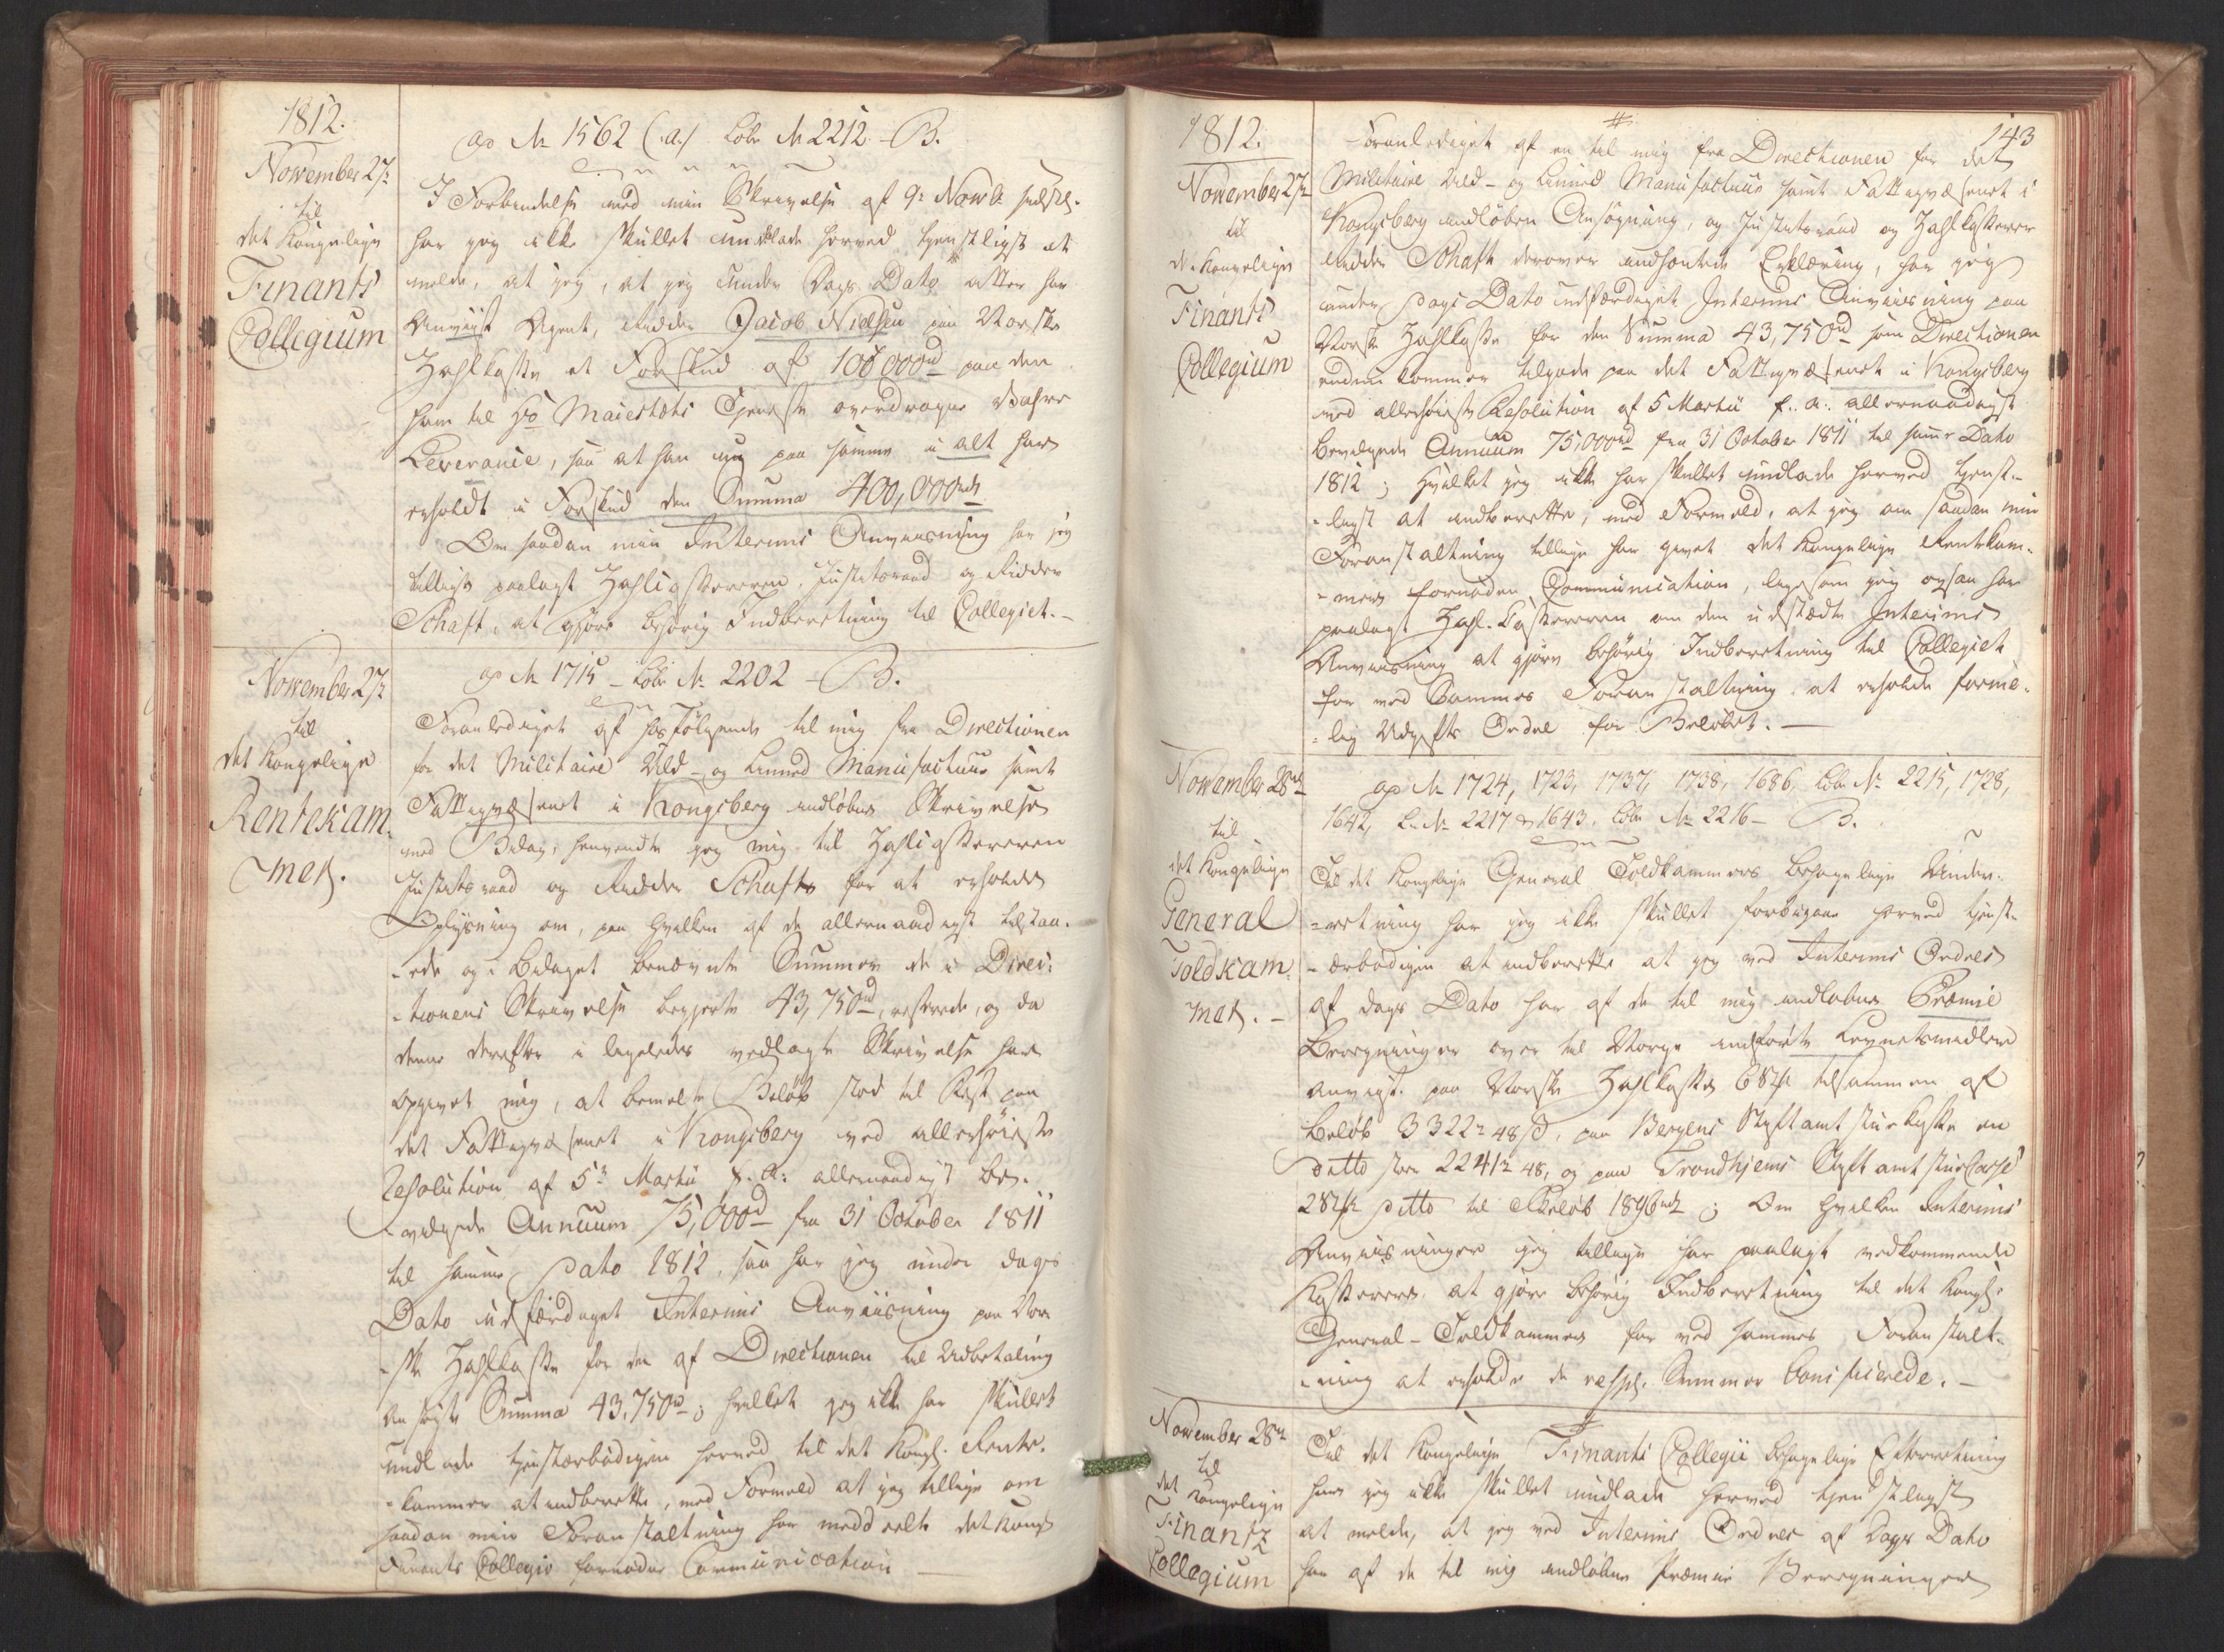 1812.
November 27.
til
det Kongelige
Finants
Collegium
ap No 1562 (a) Lobe No 2212 - B.
I Forbindelse med min Skrivelse af 9. Novbr sidstl.
har jeg ikke skullet undlade herved tjenstligst at
melde, at jeg, at jeg under Dags Dato atter har
Anviist Agent, Ridder Jacob Nielsen paa Norske
Zahlkasse et Forskud af 100,000 rd paa den
ham til Hs Maiestæts Tjeneste overdragne
Leverance, saa at han nu paa samme i alt har
erholdt i Forskud den Summa 400,000 rd
Om saadan min Interims Anviisning har jeg
tillige paalagt Zahlkassereren, Justitsraad og Ridder
Schaft, at gjøre behørig Indberetning til Collegiet.-
November 27.
til
det Kongelige
Rentekam-
mer.
ap No 1715 - Lobe No 2202 - B.
Foranlediget af hosfølgende til mig fra Directionen
for det Militaire Uld- og Linned Manufactuur samt
Fattigvæsenet i Kongsberg indløbne Skrivelse
med Bilag, henvendte jeg mig til Zahlkassereren
Justitsraad og Ridder Schaft for at erholde
Oplysning om, paa hvilken af de allernaadigst tilstaa-
-ede og i Bilaget benævnte Summer de i Direc-
-tionens Skrivelse begjerte 43,750 rd, resterede, og da
denne derefter i ligeledes vedlagte Skrivelse har
opgivet mig, at bemeldte Beløb stod til Rest paa
det Fattigvæsenet i Kongsberg ved allerhøieste
Resolution af 5. Martii f. A. allernaadigst be-
-vilgede Annuum 75,000 rd fra 31 October 1811
til samme Dato 1812, saa har jeg under Dags
Dato udfærdiget Interims Anviisning paa Nor-
-ske Zahlkasse for den af Directionen til Udbetaling
ansøgte Summa 43,750 rd; hvilket jeg ikke har skullet
undlade tjenstærbødigen herved til det Kongl. Rente-
-kammer at indberette, med Formeld at jeg tillige om
saadan min Foranstaltning har meddeelt det Kongl
Finants Collegio fornøden Communication
1812.
143
November 27
til
det Kongelige
Finants
Collegium
Foranlediget af en til mig fra Directionen for det
Militaire Uld- og Linned Manufactuur samt Fattigvæsenet i
Kongsberg indløben Ansøgning, og Justitsraad og Zahlkasserer
Ridder Schaft derover indhentede Erklæring, har jeg
under Dags Dato udfærdiget Interims Anviisning paa
Norske Zahlkasse for den Summa 43,750 rd som Directionen
endnu kommer tilgode paa det Fattigvæsenet i Kongsberg
ved allerhøieste Resolution af 5 Martii f. a. allernaadigst
bevilgede Annuum 75,000 rd fra 31 October 1811 til samme Dato
1812; hvilket jeg ikke har skullet undlade herved tjenst-
-ligst at indberette, med Formeld, at jeg om saadan min
Foranstaltning tillige har givet det Kongelige Rentekam-
-mer fornøden Communication, ligesom jeg ogsaa har
paalagt Zahl-Kassereren om den udstædte Interims
Anviisning at gjøre behørig Indberetning til Collegiet
for ved Sammes Foranstaltning at erholde forme-
-lig Udgifts Ordre for Beløbet.-
November 28de
til
det Kongelige
General
Toldkam-
mer.-
ap No 1724, 1723, 1737, 1738, 1686, Lobe No 2215, 1728,
1642, L. No 2217 & 1643. Lobe No 2216 - B.
Til det Kongelige General Toldkammers behagelige Under-
-retning har jeg ikke skullet forbigaae herved tjenst-
-ærbødigen at indberette at jeg ved Interims Ordres
af Dags Dato har af de til mig indløbne Præmie
Beregninger over til Norge indførte Levnetsmidler
anviist paa Norske Zahlkasse 6 Stk tilsammen af
Beløb 3322 r 48 s, paa Bergens Stiftamtstuekasse en
ditto stor 2241 r 48, og paa Trondhjems Stiftamtstue Casse
2 Stk ditto til Beløb 1896 rd; Om hvilken Interims
Anviisninger jeg tillige har paalagt vedkommende
Kasserere at gjøre behørig Indberetning til det Kongl.
General-Toldkammer for ved sammes Foranstalt-
-ning at erholde de respl. Summer bonificerede.-
November 28
til
det Kongelige
Finants
Collegium
Til det Kongelige Finants Collegii behagelige Efterretning
har jeg ikke skullet undlade herved tjenstligst
at melde, at jeg ved Interims Ordres af Dags Dato
har af de til mig indløbne Præmie Beregninger